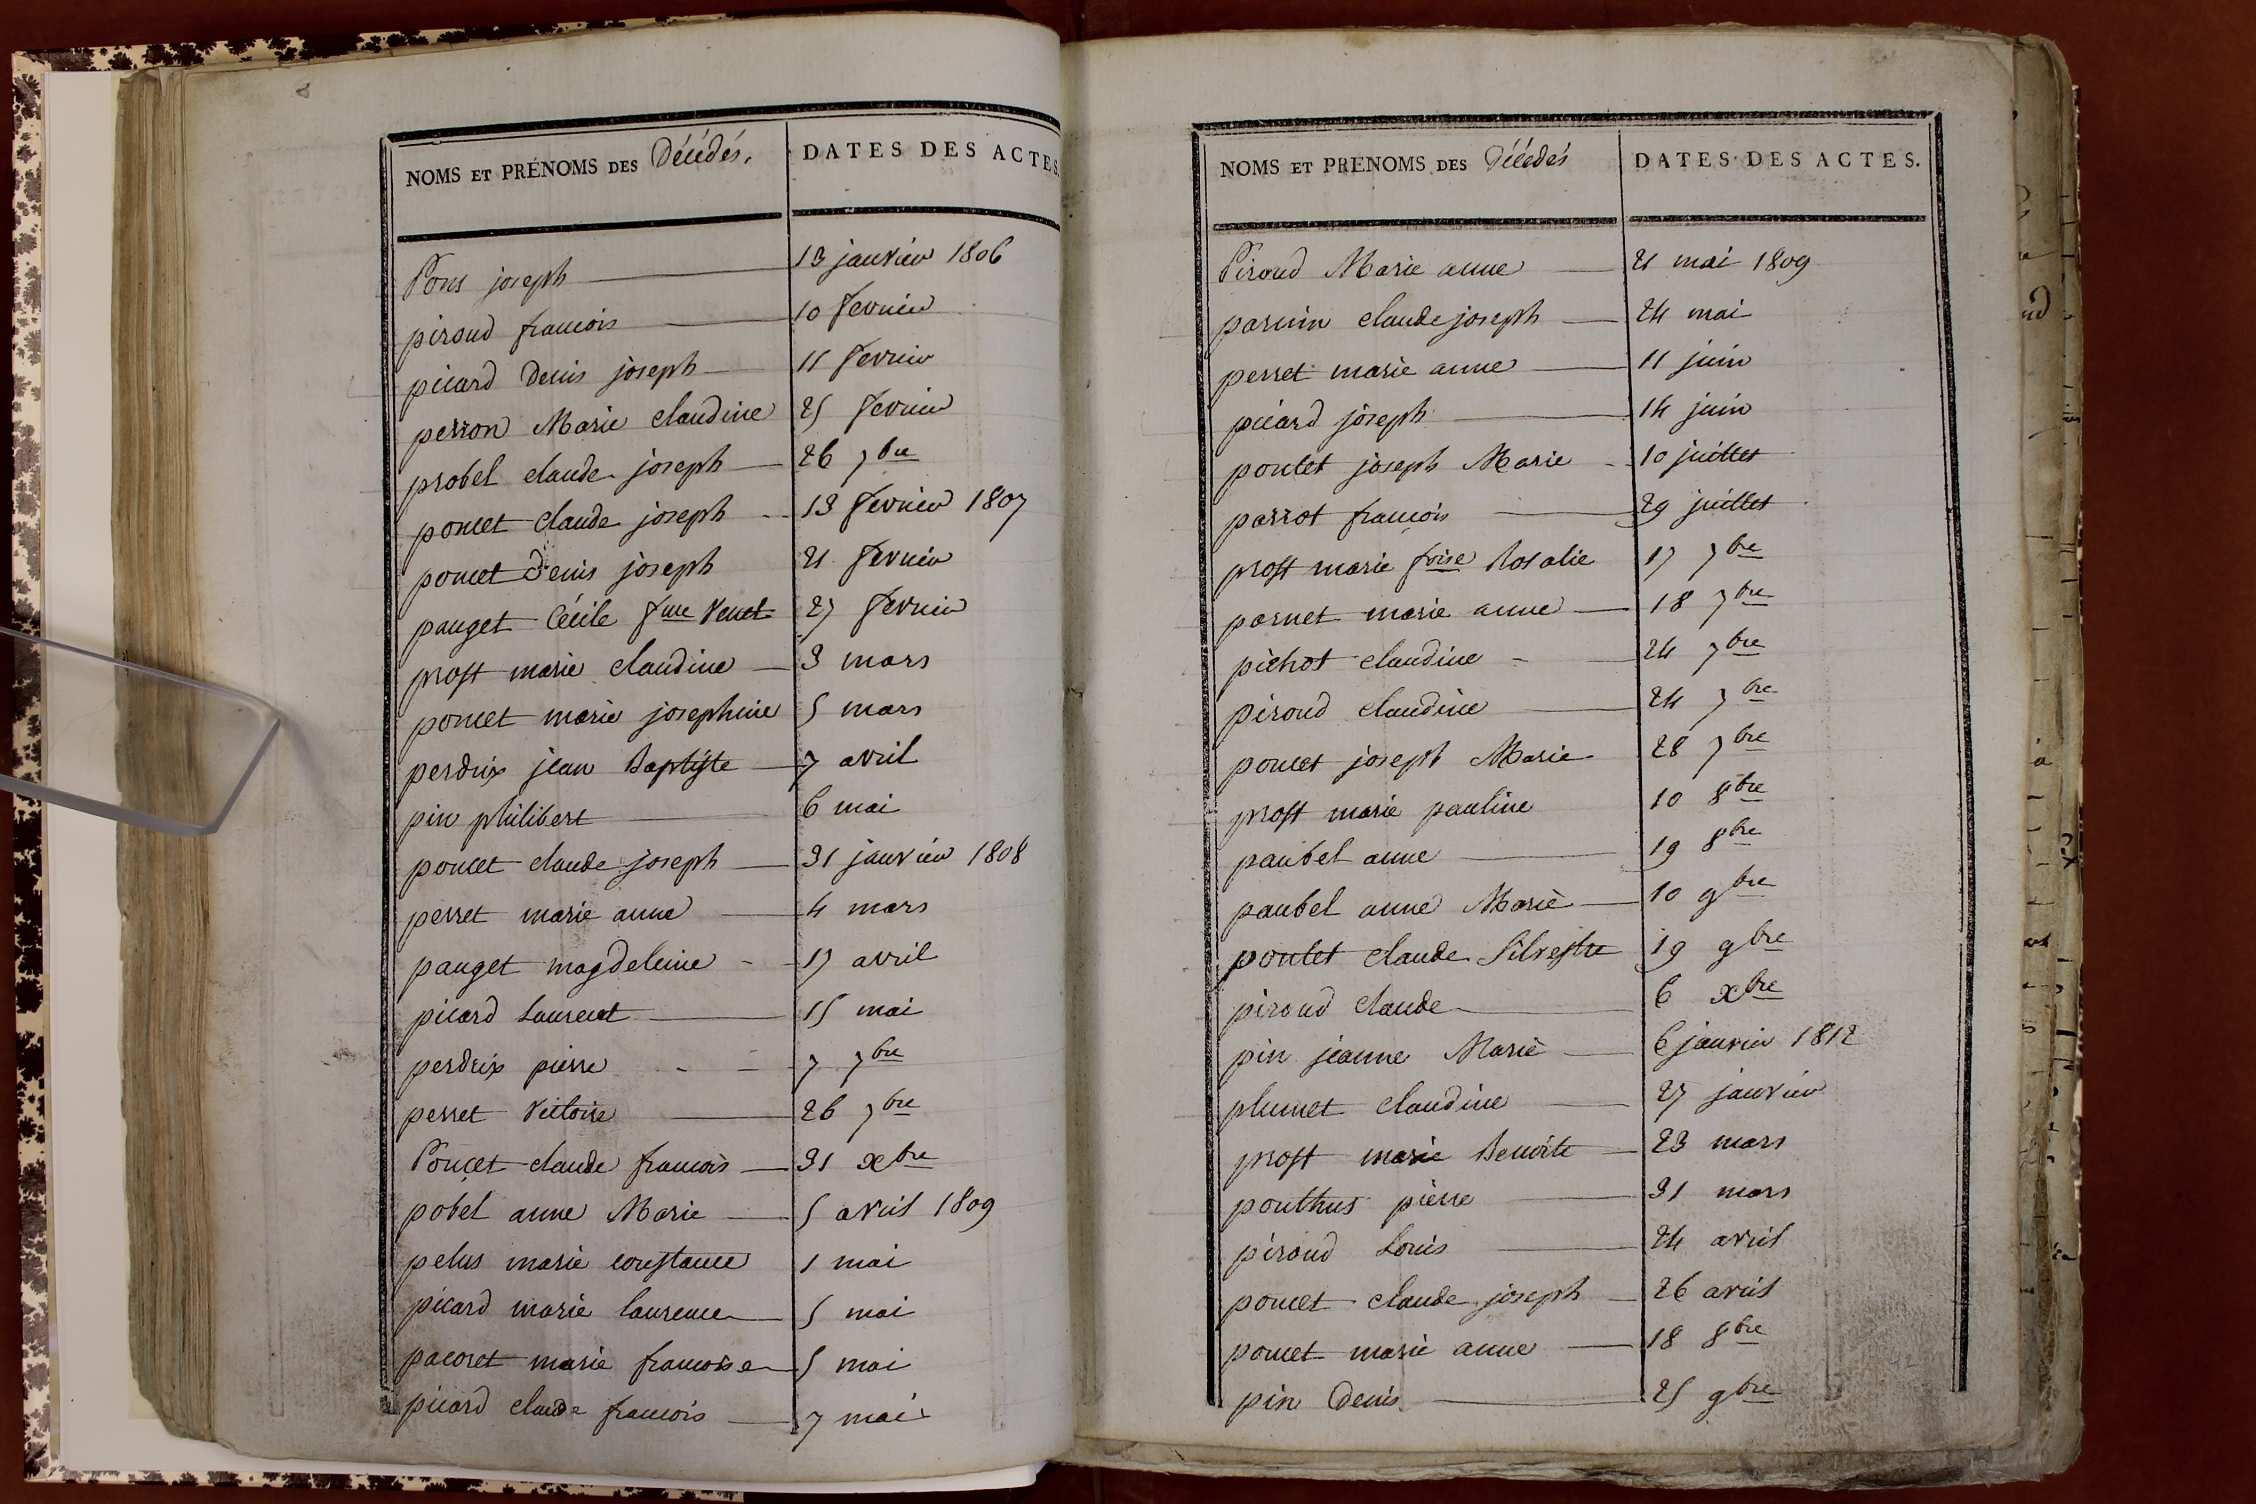 NOMS ET PRÉNOMS DES Décédés. DATES DES ACTES.
Pons joseph 13 janvier 1806
piroud francois 10 fevrier
picard Denis joseph 11 fevrier
perron Marie claudine 25 fevrier
probel claude joseph 26 7bre
poncet claude joseph 13 fevrier 1807
poncet Denis joseph 21 fevrier
pauget Cécile fme Venet 27 fevrier
prost marie claudine 3 mars
poncet marie josephine 5 mars
perdrix jean Baptiste 7 avril
pin philibert 6 mai
poncet claude joseph 31 janvier 1808
perret marie anne 4 mars
pauget magdeleine 17 avril
picard Laurent 15 mai
perdrix pierre 7 7bre
perret Victoire 26 7bre
Poncet claude francois 31 xbre
pobel anne Marie 5 avril 1809
pelus marie constance 1 mai
picard marie laurence 5 mai
pacoret marie francoise 5 mai
picard claude francois 7 mai
NOMS ET PRÉNOMS DES Décédés DATES DES ACTES.
Piroud Marie anne 21 mai 1809
parnin claude joseph 24 mai
perret marie anne 11 juin
picard joseph 14 juin
pontet joseph Marie 10 juillet
parrot francois 29 juillet
prost marie foise Rosalie 17 7bre
parnet marie anne 18 7bre
pichot claudine 24 7bre
piroud claudine 24 7bre
poncet joseph Marie 28 7bre
prost marie pauline 10 8bre
paubel anne 19 8bre
paubel anne Marie 10 9bre
pontet claude Silvestre 19 9bre
piroud claude 6 xbre
pin jeanne Marie 6 janvier 1812
plumet claudine 27 janvier
prost marie Benoite 23 mars
ponthus pierre 31 mars
piroud Louis 24 avril
poncet claude joseph 26 avril
poncet marie anne 18 8bre
pin Denis 25 9bre